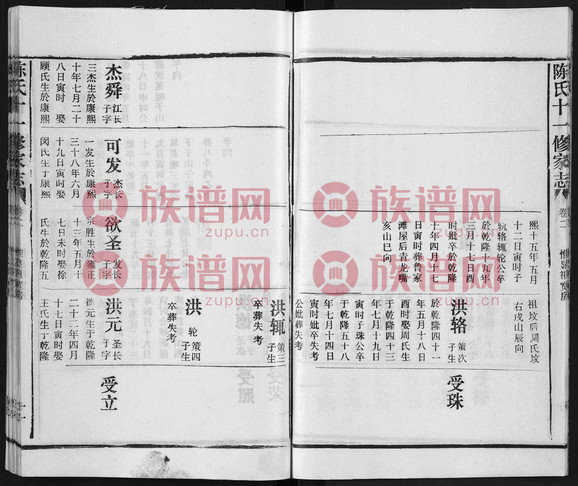 陈氏十一修家志
卷二
熙十五年五月
十二日寅时子
辂辅轮公卒
於乾隆十九年
三月十七日
时妣卒於乾隆
十年四月十七
日寅时葬曹家
滩屋后青龙嘴
亥山巳向
祖坟后周氏坟
石戌山辰向
洪辂
策次子生
於乾隆四十一
年五月十八日
酉时娶周氏生
于乾隆四十三
年七月十九日
寅时子珠公卒
于乾隆五十八
年七月十四日
寅时妣卒失考
公妣葬失考
受珠
洪辄
策三子生
卒葬失考
洪轮
策四子生
卒葬失考
杰舜
江长子字
三杰生於康熙
十年七月二十
八日寅时娶
顾氏生於康熙
可发
杰长子字
一发生於康熙
三十八年六月
十九日寅时娶
闵氏生于康熙
欲圣
发长子字
宗胜生於雍正
十三年五月十
七日未时娶徐
氏生於乾隆五
洪元
圣长子字
德元生于乾隆
二十二年四月
十七日寅时娶
王氏生于乾隆
受立
陈氏十一修家志
族谱网
zupu.cn